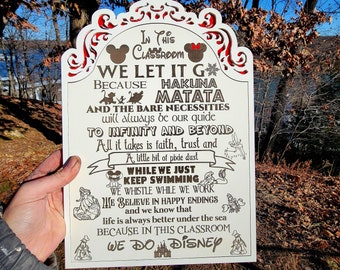 In This
Classroom
WE LET IT GO
Because HAKUNA
MATATA
AND THE BARE NECESSITIES
will always be our guide
TO INFINITY AND BEYOND
All it takes is faith, trust and
A little bit of pixie dust
WHILE WE JUST
KEEP SWIMMING
WE WHISTLE WHILE WE WORK
We Believe in happy endings
and we know that
life is always better under the sea
BECAUSE IN THIS CLASSROOM
WE DO DISNEY